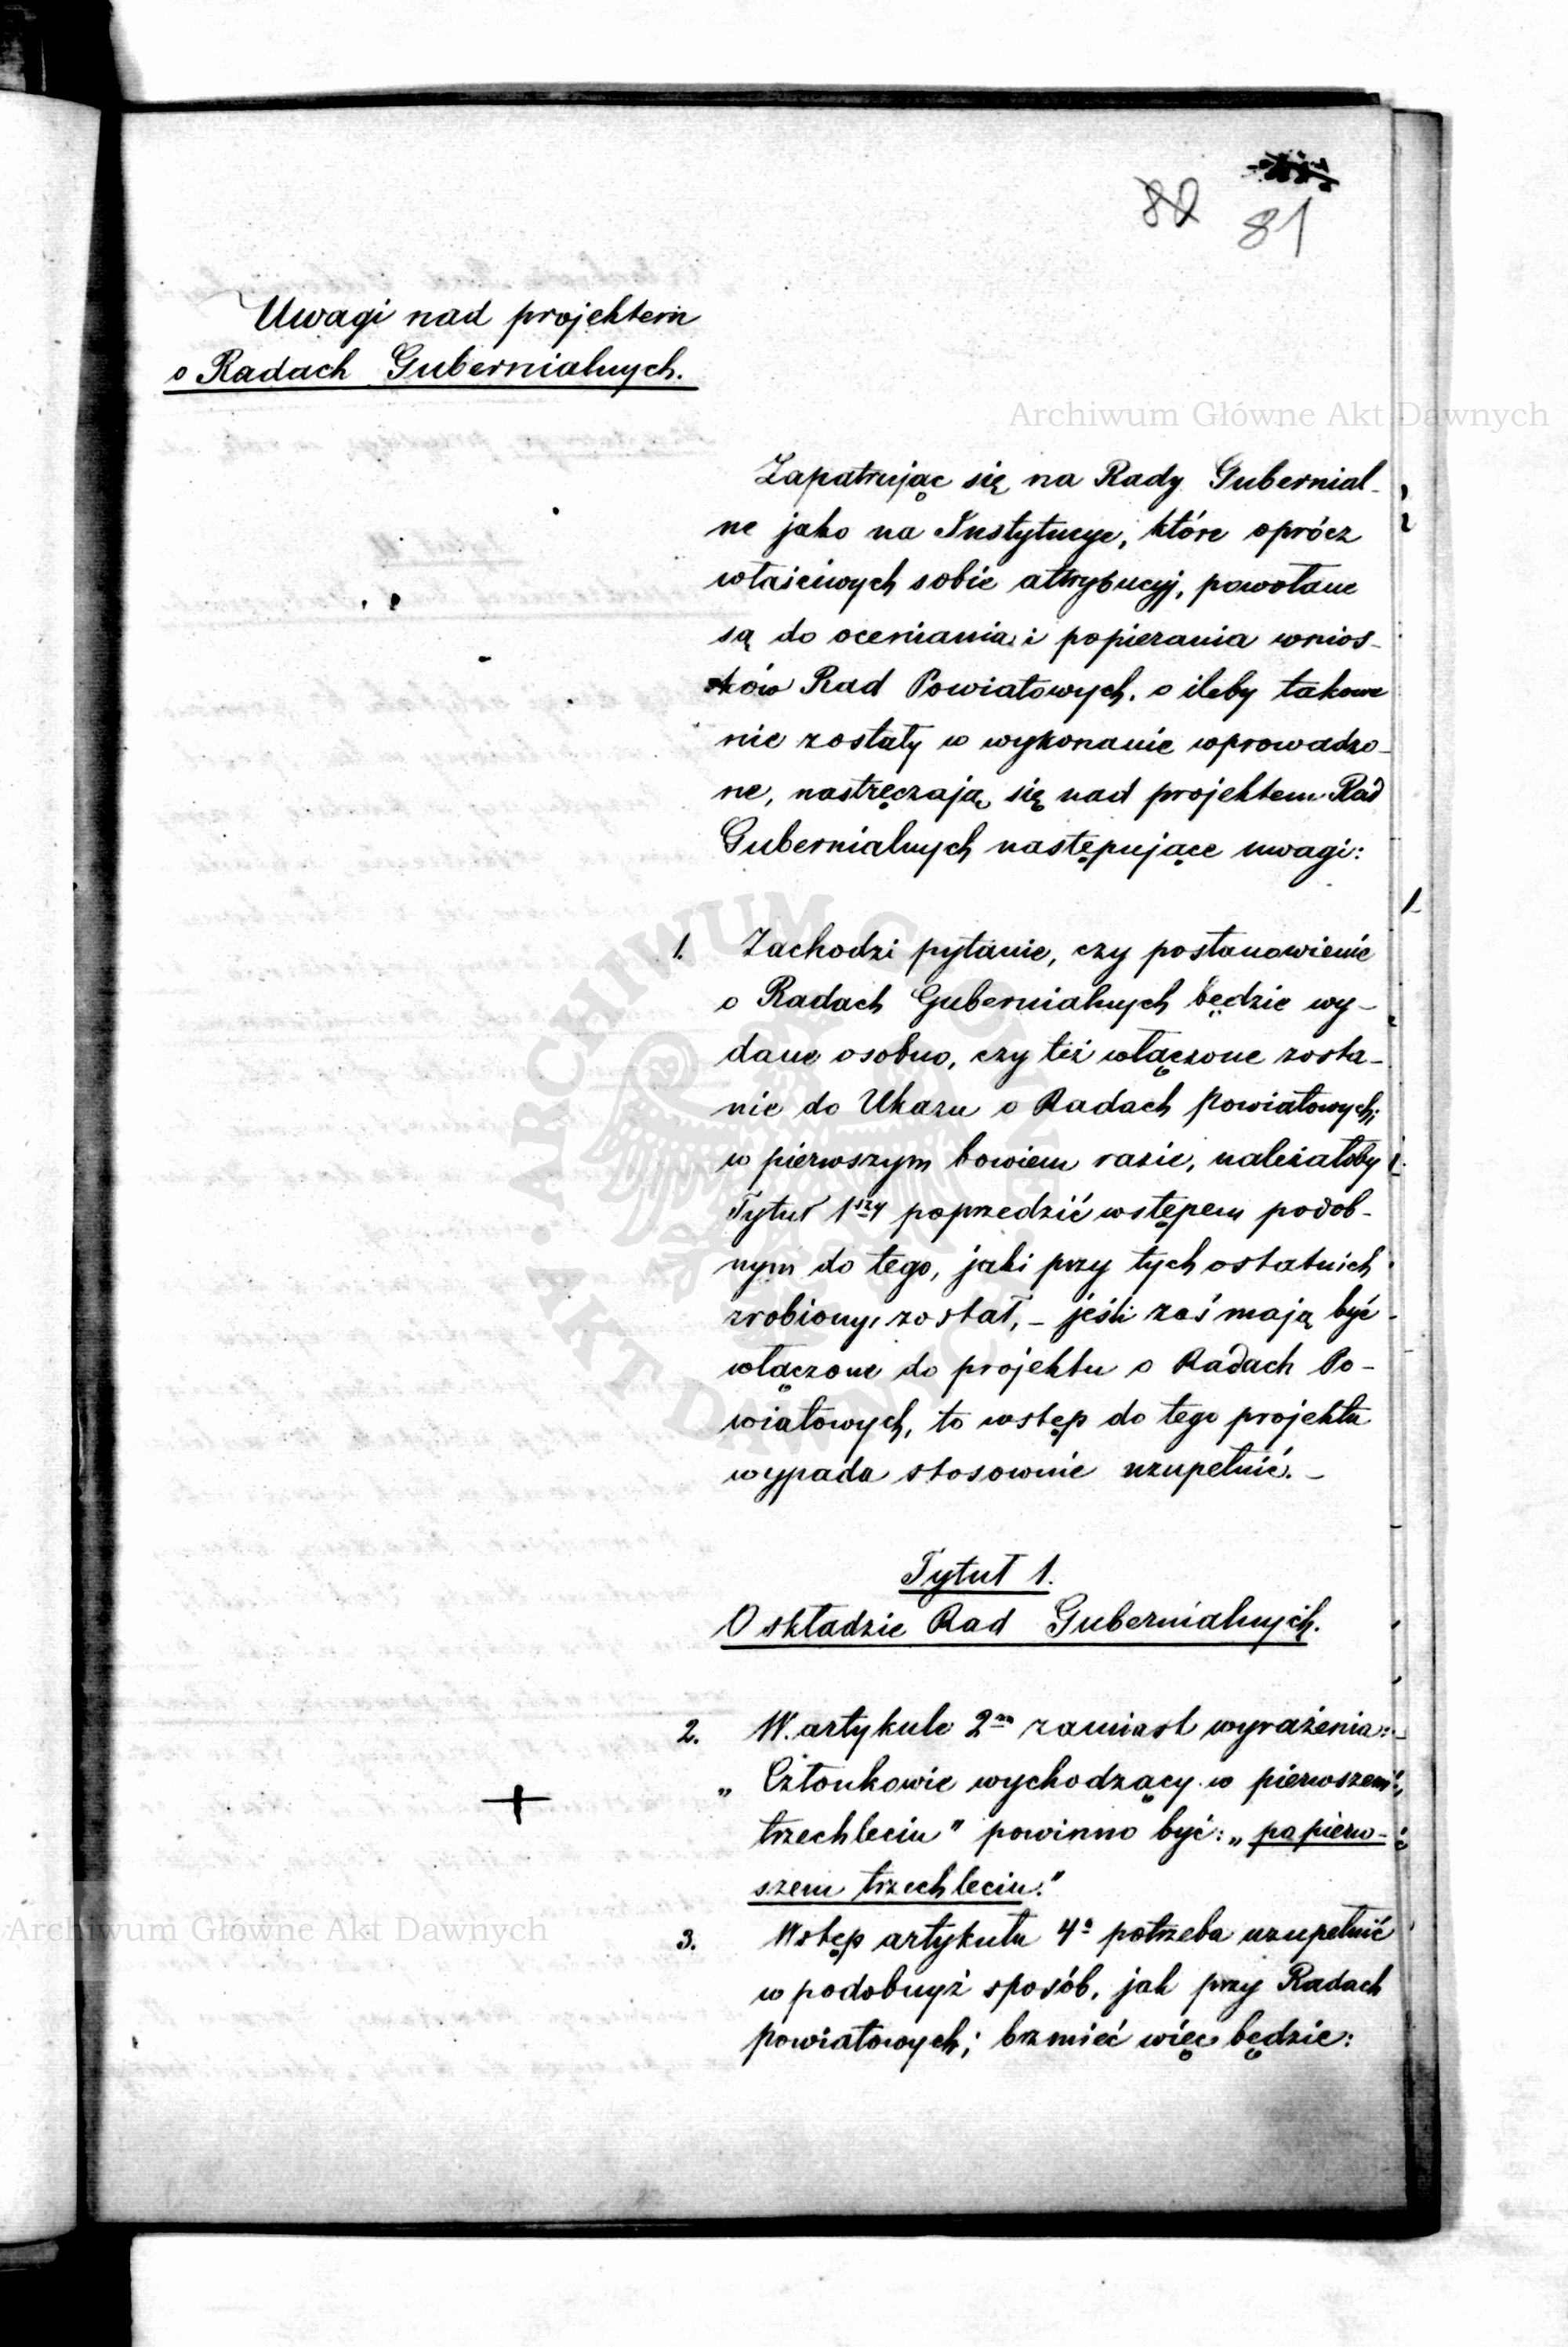 80 81
Uwagi nad projektem
o Radach Gubernialnych.
Archiwum Główne Akt Dawnych
Zapatrując się na Rady Gubernial-
ne jako na Instytucye, które oprócz
właściwych sobie attrybucyj, powołane
są do oceniania i popierania wnios-
ków Rad Powiatowych, o ileby takowe
nie zostały w wykonanie wprowadzo-
ne, nastręczają się nad projektem Rad
Gubernialnych następujące uwagi:
1. Zachodzi pytanie, czy postanowienie
o Radach Gubernialnych będzie wy-
dane osobno, czy też włączone zosta-
nie do Ukazu o Radach Powiatowych;
w pierwszym bowiem razie, należałoby
Tytuł 1szy poprzedzić wstępem podob-
nym do tego, jaki przy tych ostatnich
zrobiony został, – jeśli zaś mają być
włączone do projektu o Radach Po-
wiatowych, to wstęp do tego projektu
wypada stosownie uzupełnić. –
Tytuł 1.
O składzie Rad Gubernialnych.
2. W artykule 2m zamiast wyrażenia:
„Członkowie wychodzący w pierwszem
trzechleciu" powinno być: „po pierw-
szem trzechleciu."
3. Wstęp artykułu 4o potrzeba uzupełnić
w podobnyż sposób, jak przy Radach
powiatowych; brzmieć więc będzie:
Archiwum Główne Akt Dawnych
ARCHIWUM GŁÓWNE AKT DAWNYCH